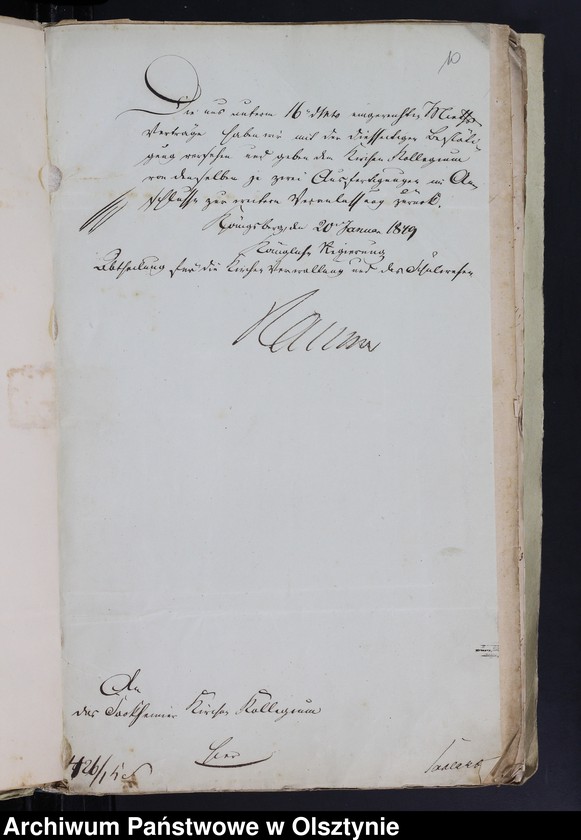 10
Die uns unterm 16. d. Mts eingereichten Mieths-
Verträge haben wir mit der diesseitigen Bestäti-
gung versehen und geben dem Kirchen Kollegium
von denselben je zwei Ausfertigungen im An-
schlusse zur weitern Veranlassung zurück.
Königsberg, den 20. Januar 1849
Königliche Regierung
Abtheilung für die Kirchen Verwaltung und das Schulwesen
An
das Sackheimer Kirchen Kollegium
hier
426/1
Archiwum Państwowe w Olsztynie